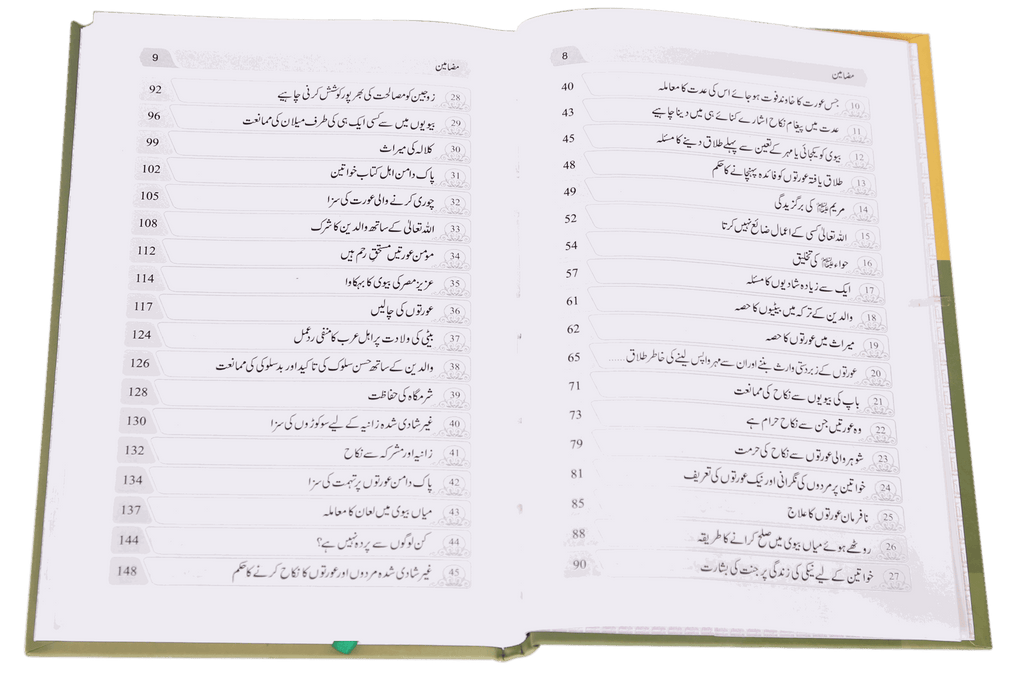 مضامین 8
10 جس عورت کا خاوند فوت ہو جائے اس کی عدت کا معاملہ 40
11 عدت میں پیغام نکاح اشارے کنائے ہی میں دینا چاہیے 43
12 بیوی کو یکجائی یا مہر کے تعین سے پہلے طلاق دینے کا مسئلہ 45
13 طلاق یافتہ عورتوں کو فائدہ پہنچانے کا حکم 48
14 مریم علیہا السلام کی برگزیدگی 49
15 اللہ تعالیٰ کسی کے اعمال ضائع نہیں کرتا 52
16 حواء علیہا السلام کی تخلیق 54
17 ایک سے زیادہ شادیوں کا مسئلہ 57
18 والدین کے ترکہ میں بیٹیوں کا حصہ 61
19 میراث میں عورتوں کا حصہ 62
20 عورتوں کے زبردستی وارث بننے اور ان سے مہر واپس لینے کی خاطر طلاق ..... 65
21 باپ کی بیویوں سے نکاح کی ممانعت 71
22 وہ عورتیں جن سے نکاح حرام ہے 73
23 شوہر والی عورتوں سے نکاح کی حرمت 79
24 خواتین پر مردوں کی نگرانی اور نیک عورتوں کی تعریف 81
25 نافرمان عورتوں کا علاج 85
26 روٹھے ہوئے میاں بیوی میں صلح کرانے کا طریقہ 88
27 خواتین کے لیے نیکی کی زندگی پر جنت کی بشارت 90
مضامین 9
28 زوجین کو مصالحت کی بھرپور کوشش کرنی چاہیے 92
29 بیویوں میں سے کسی ایک ہی کی طرف میلان کی ممانعت 96
30 کلالہ کی میراث 99
31 پاک دامن اہل کتاب خواتین 102
32 چوری کرنے والی عورت کی سزا 105
33 اللہ تعالیٰ کے ساتھ والدین کا شرک 108
34 مومن عورتیں مستحق رحم ہیں 112
35 عزیز مصر کی بیوی کا بہکاوا 114
36 عورتوں کی چالیں 117
37 بیٹی کی ولادت پر اہل عرب کا منفی رد عمل 124
38 والدین کے ساتھ حسن سلوک کی تاکید اور بدسلوکی کی ممانعت 126
39 شرمگاہ کی حفاظت 128
40 غیر شادی شدہ زانیہ کے لیے سو کوڑوں کی سزا 130
41 زانیہ اور مشرکہ سے نکاح 132
42 پاک دامن عورتوں پر تہمت کی سزا 134
43 میاں بیوی میں لعان کا معاملہ 137
44 کن لوگوں سے پردہ نہیں ہے؟ 144
45 غیر شادی شدہ مردوں اور عورتوں کا نکاح کرنے کا حکم 148